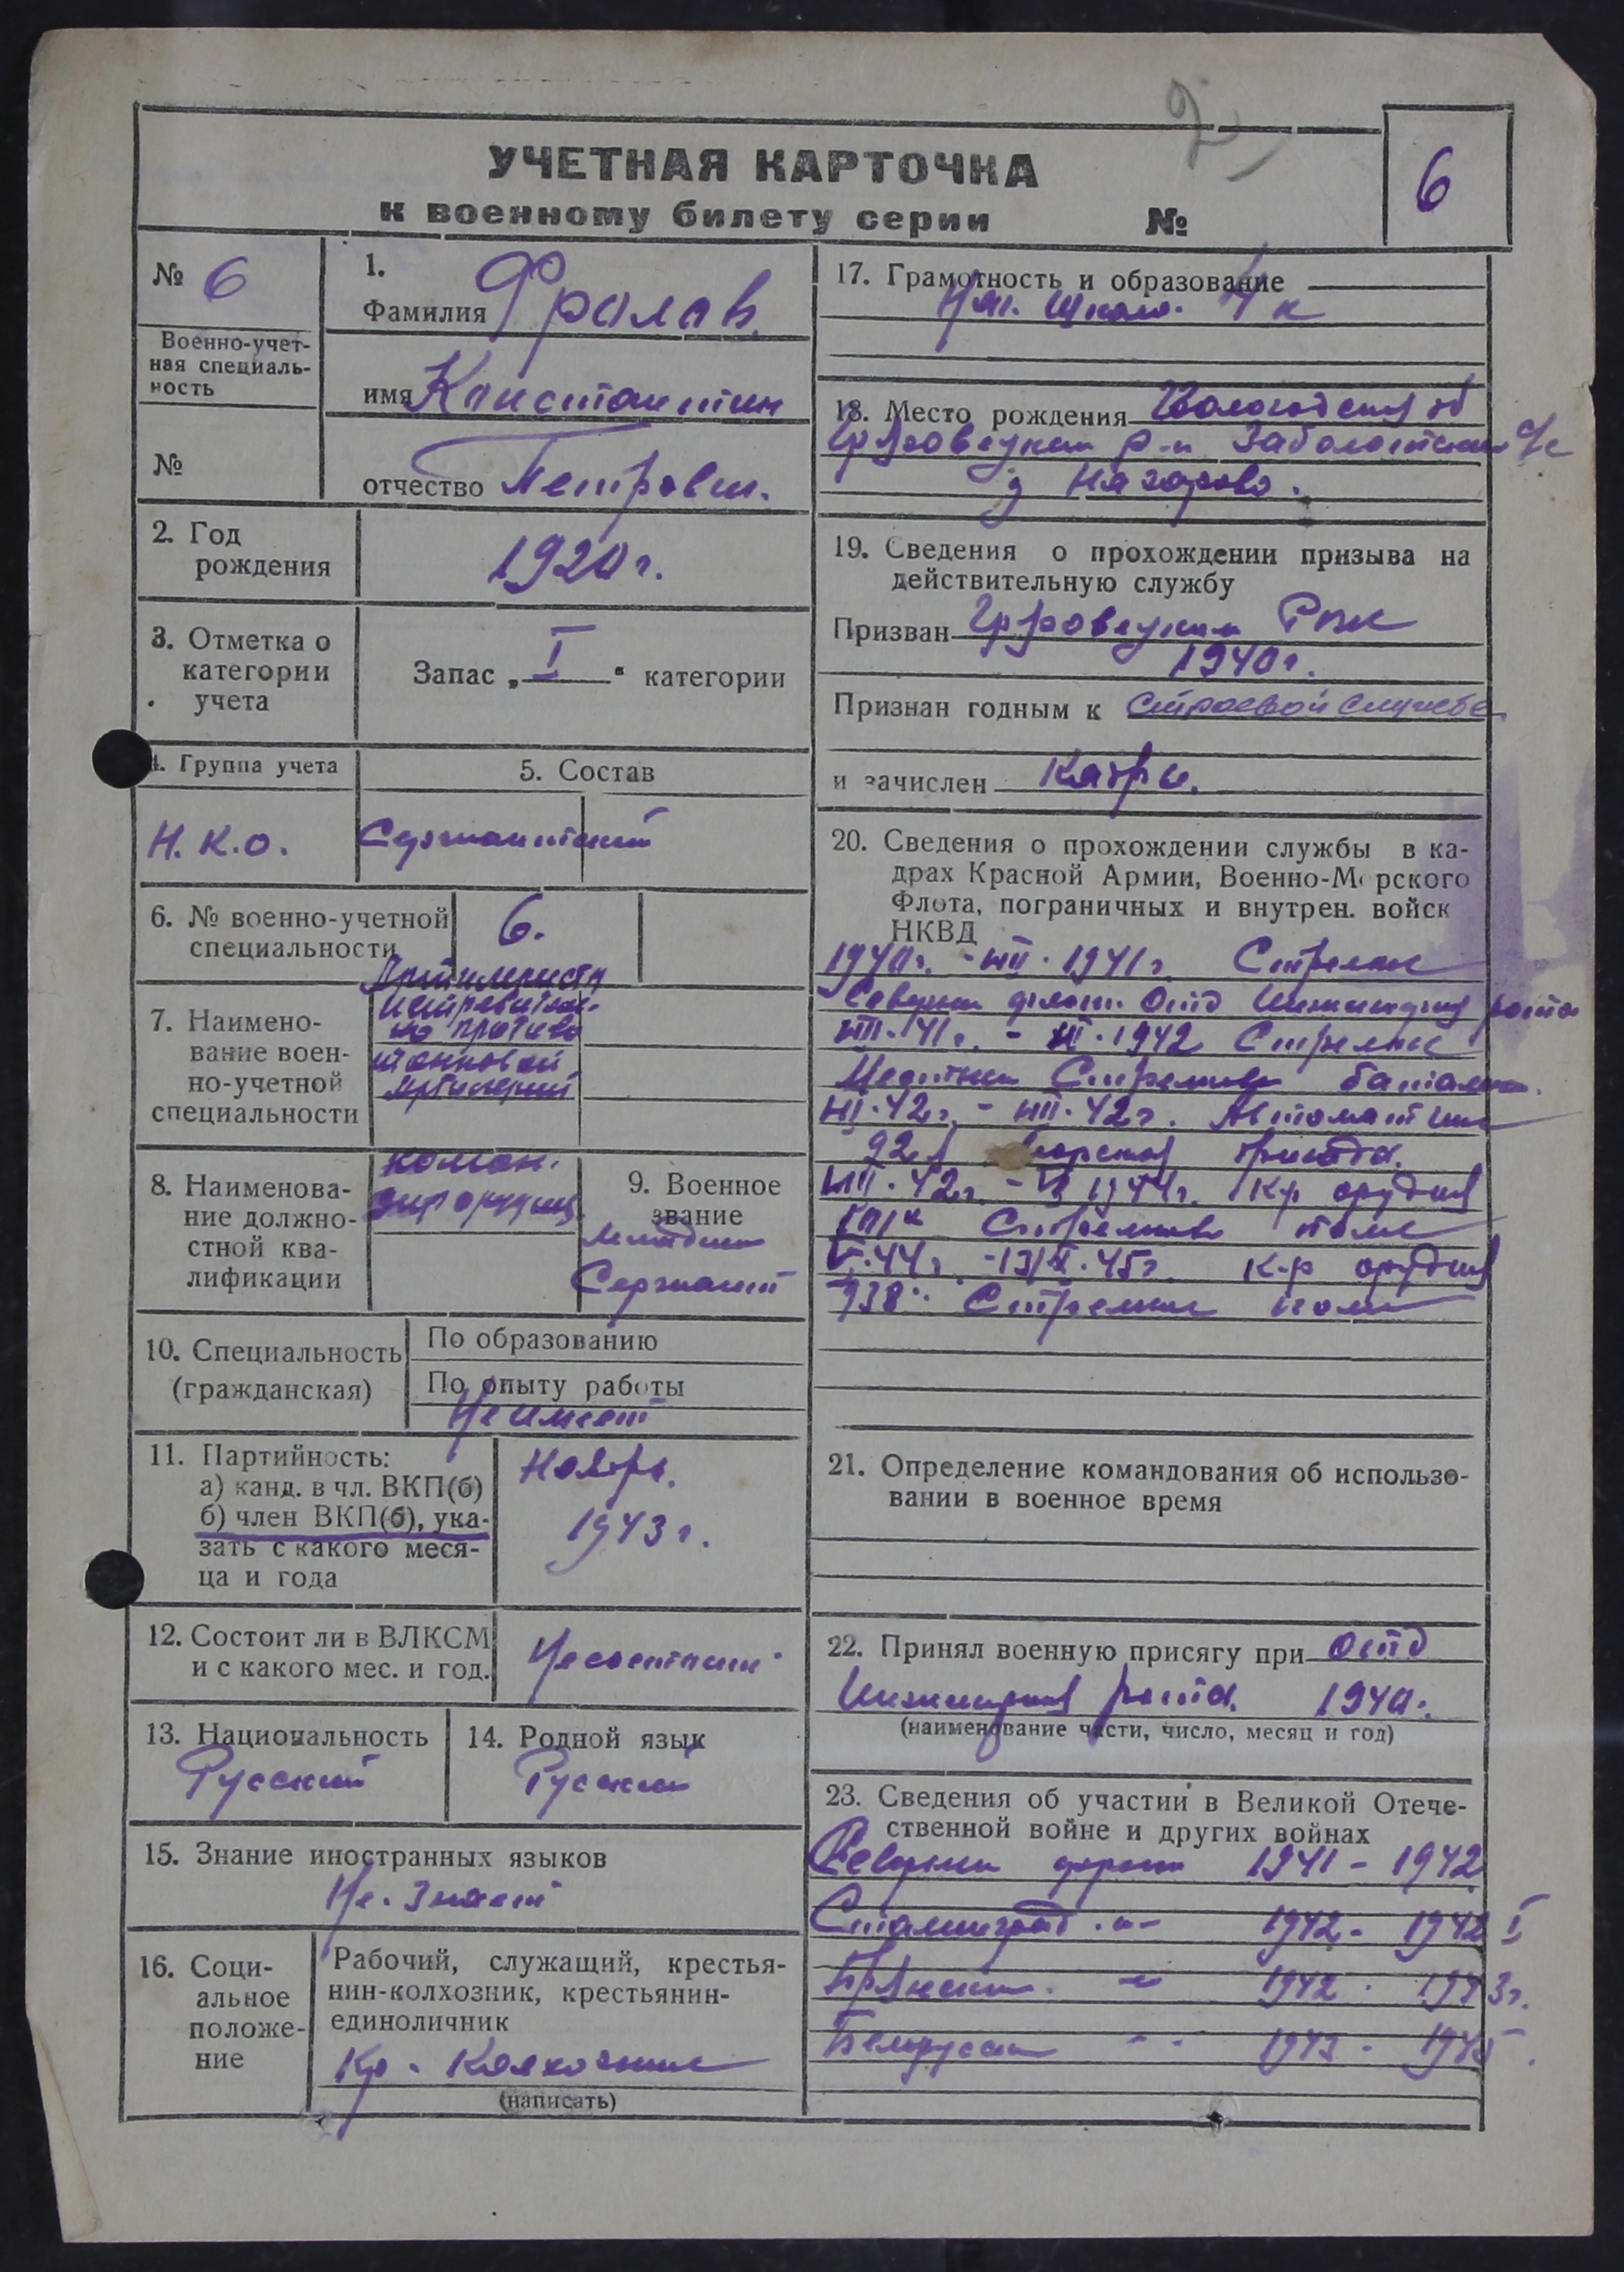 2
УЧЕТНАЯ КАРТОЧКА
к военному билету серии №
6
№ 6
Военно-учет-
ная специаль-
ность
№
1.
Фамилия Фролов
имя Константин
отчество Петрович.
2. Год
рождения
1920 г.
3. Отметка о
категории
учета
Запас „ I " категории
4. Группа учета
Н.К.О.
5. Состав
Сержантский
6. № военно-учетной
специальности
6.
7. Наимено-
вание воен-
но-учетной
специальности
Артиллеристы
истребитель-
но противо
танковой
артилерий
8. Наименова-
ние должно-
стной ква-
лификации
коман.
дир орудия
9. Военное
звание
младший
Сержант
10. Специальность
(гражданская)
По образованию
По опыту работы
Не имеет
11. Партийность:
а) канд. в чл. ВКП(б)
б) член ВКП(б), ука-
зать с какого меся-
ца и года
Ноябрь.
1943 г.
12. Состоит ли в ВЛКСМ
и с какого мес. и год.
Не состоит
13. Национальность
Русский
14. Родной язык
Русский
15. Знание иностранных языков
Не. Знает
16. Соци-
альное
положе-
ние
Рабочий, служащий, крестья-
нин-колхозник, крестьянин-
единоличник
Кр. Колхозник
(написать)
17. Грамотность и образование
Нач. Школ. 4 к
18. Место рождения Вологодская об
Грязовецкий р-н Заболотский с/с
д
19. Сведения о прохождении призыва на
действительную службу
Призван Грязовецким РВК
1940 г.
Признан годным к строевой службе
и зачислен Кадры.
20. Сведения о прохождении службы в ка-
драх Красной Армии, Военно-Морского
Флота, пограничных и внутрен. войск
НКВД
1940 г. - VIII. 1941 г. Стрелок
Северный флот. Отд Инженерная рота
VIII. 41 г. - 1942 Стрелок
Стрелковый баталион.
42 г. - VIII. 42 г. Автоматчик
92 я Морская бригада.
VIII. 42 г. - 1944 г. К-р орудия
Стрелковый полк
V. 44 г. - 45 г. К-р орудия
938 Стрелковый полк
21. Определение командования об использо-
вании в военное время
22. Принял военную присягу при Отд
Инженерная рота. 1940.
(наименование части, число, месяц и год)
23. Сведения об участии в Великой Отече-
ственной войне и других войнах
Северный фронт 1941 - 1942
Сталинград -"- 1942 - 1942 г
Брянский " 1942 - 1943 г.
Белорусский -"- 1943 - 1945.